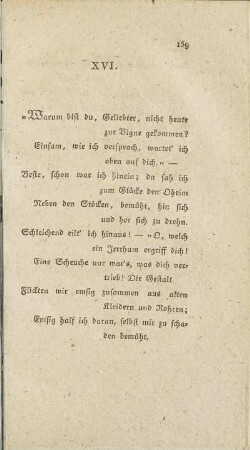 159
XVI.
»Warum bist du, Geliebter, nicht heute
zur Vigne gekommen?
Einsam, wie ich versprach, wartet' ich
oben auf dich.« —
Beste, schon war ich hinein; da sah ich
zum Glücke den Oheim
Neben den Stöcken, bemüht, hin sich
und her sich zu drehn.
Schleichend eilt' ich hinaus! — »O, welch
ein Irrthum ergriff dich!
Eine Scheuche nur war's, was dich ver-
trieb! Die Gestalt
Flickten wir emsig zusammen aus alten
Kleidern und Rohren;
Emsig half ich daran, selbst mir zu scha-
den bemüht.